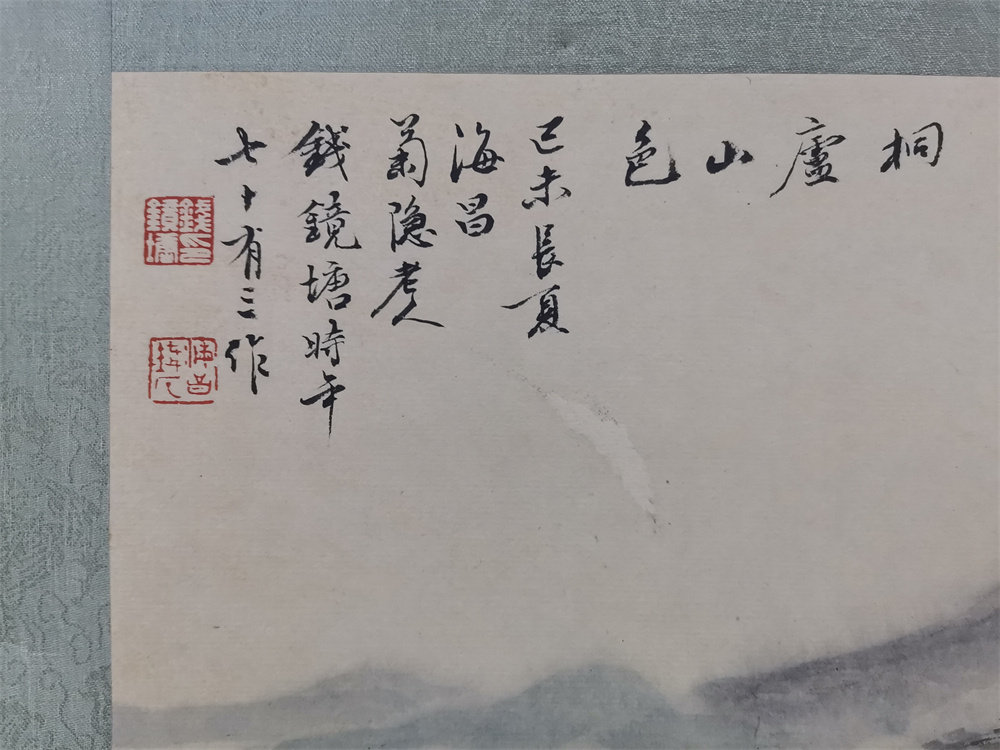 桐廬山色
己未長夏
海昌
菊隐老人
錢鏡塘時年
七十有三作
錢鏡塘印
海昌錢氏